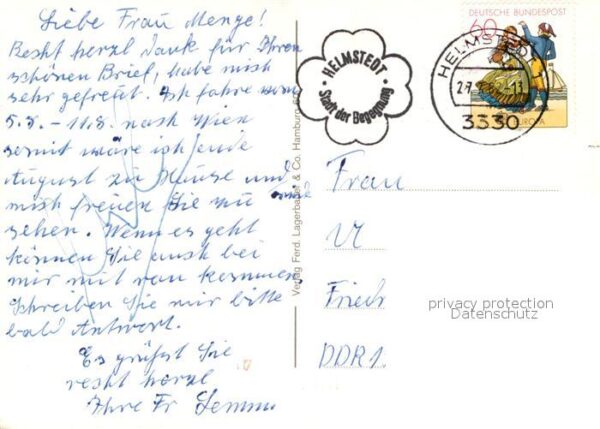 Liebe Frau Menge!
Recht herzl Dank für Ihren
schönen Brief, habe mich
sehr gefreut. Ich fahre vom
5.8. – 11.8. nach Wien
somit wäre ich ende
August zu Hause und
mich freuen Sie zu
sehen. Wenn es geht
können Sie auch bei
mir mit ran kommen
Schreiben Sie mir bitte
bald Antwort.
Es grüßt Sie
recht herzl
Ihre Fr
Verlag Ferd. Lagerbauer & Co. Hamburg
HELMSTEDT
Stadt der Begegnung
DEUTSCHE BUNDESPOST
60
EUROPA
HELMSTEDT
3330
Frau
Friedr
DDR 1.
privacy protection
Datenschutz